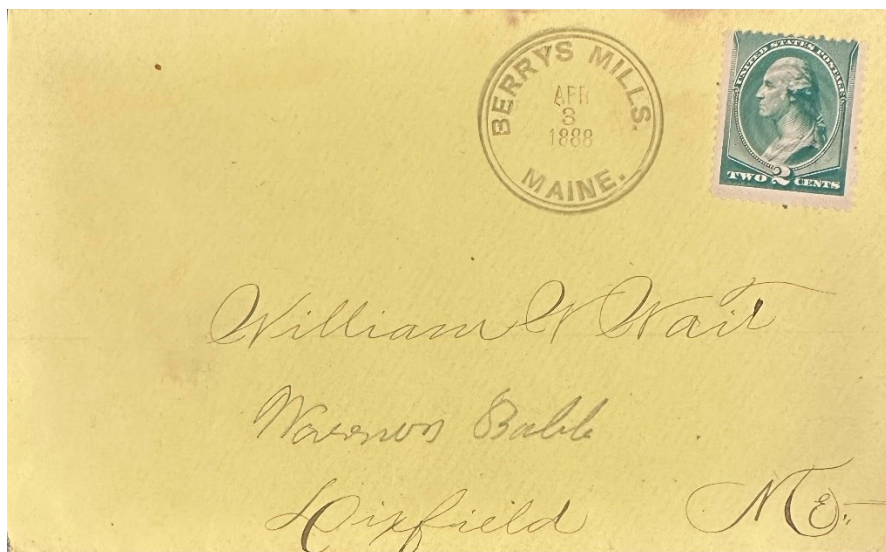 BERRYS MILLS.
APR
3
1888
MAINE.
UNITED STATES POSTAGE
TWO 2 CENTS
William W Wait
Babb
Dixfield Me.